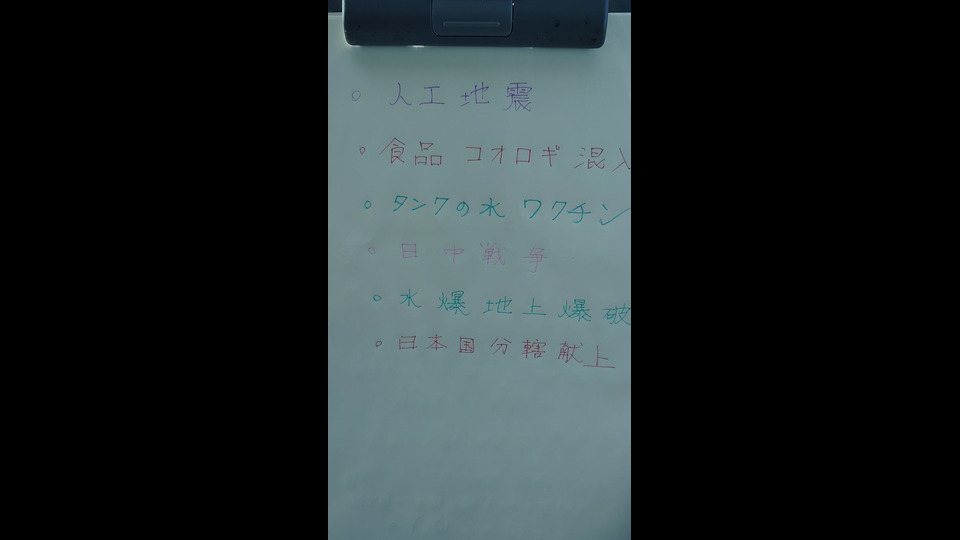 ○ 人工地震
○ 食品 コオロギ 混入
○ タンクの水 ワクチン
○ 日中戦争
○ 水爆地上爆破
○ 日本国分轄献上